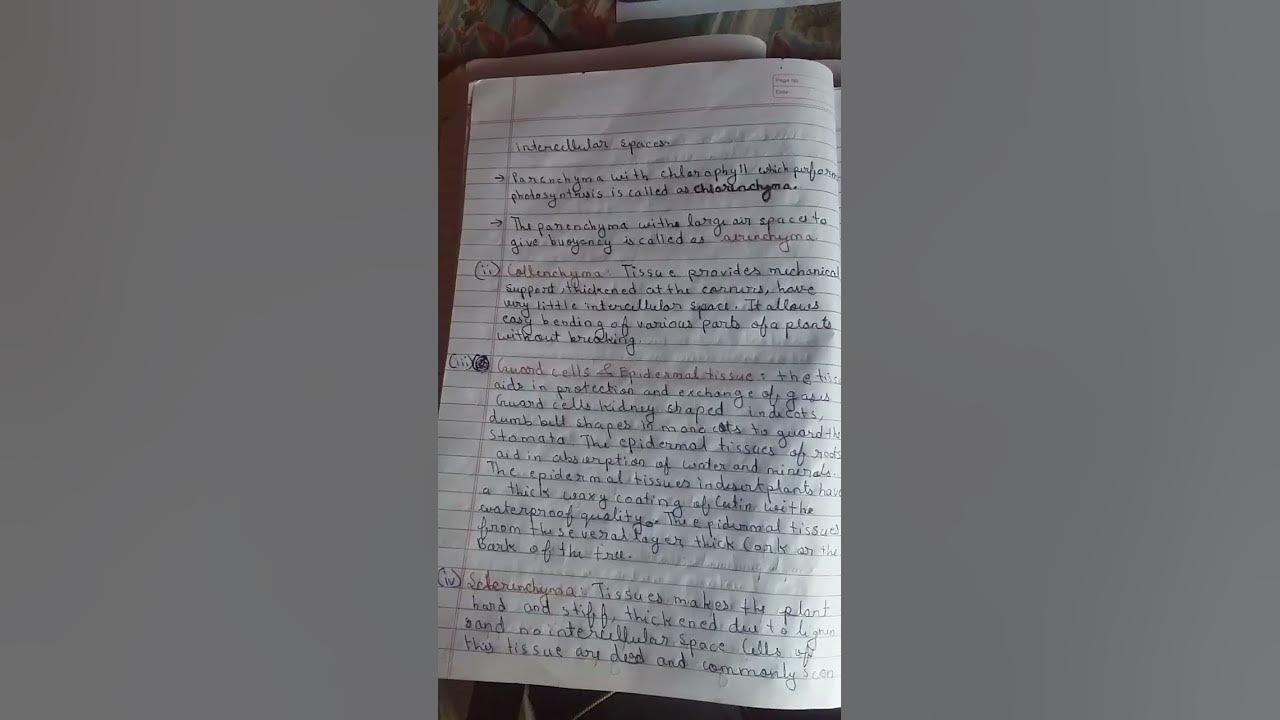 Page No.
Date
intercellular spaces.
→ Parenchyma with chlorophyll which perform
photosynthesis is called as chlorenchyma.
→ The parenchyma withe large air spaces to
give buoyancy is called as aerenchyma.
(ii) Collenchyma: Tissue provides mechanical
support, thickened at the corners, have
very little intercellular space. It allows
easy bending of various parts of a plants
without breaking.
(iii) Guard cells & Epidermal tissue: the tis
aids in protection and exchange of gases
Guard cells kidney shaped in dicots,
dumb bell shapes in mono cots to guard the
stomata. The epidermal tissues of roots
aid in absorption of water and minerals.
The epidermal tissues in desert plants have
a thick waxy coating of Cutin withe
waterproof quality. The epidermal tissues
from the several layer thick Cork or the
Bark of the tree.
(iv) Sclerenchyma: Tissues makes the plant
hard and stiff, thickened due to lignin
and no intercellular space Cells of
this tissue are dead and commonly seen